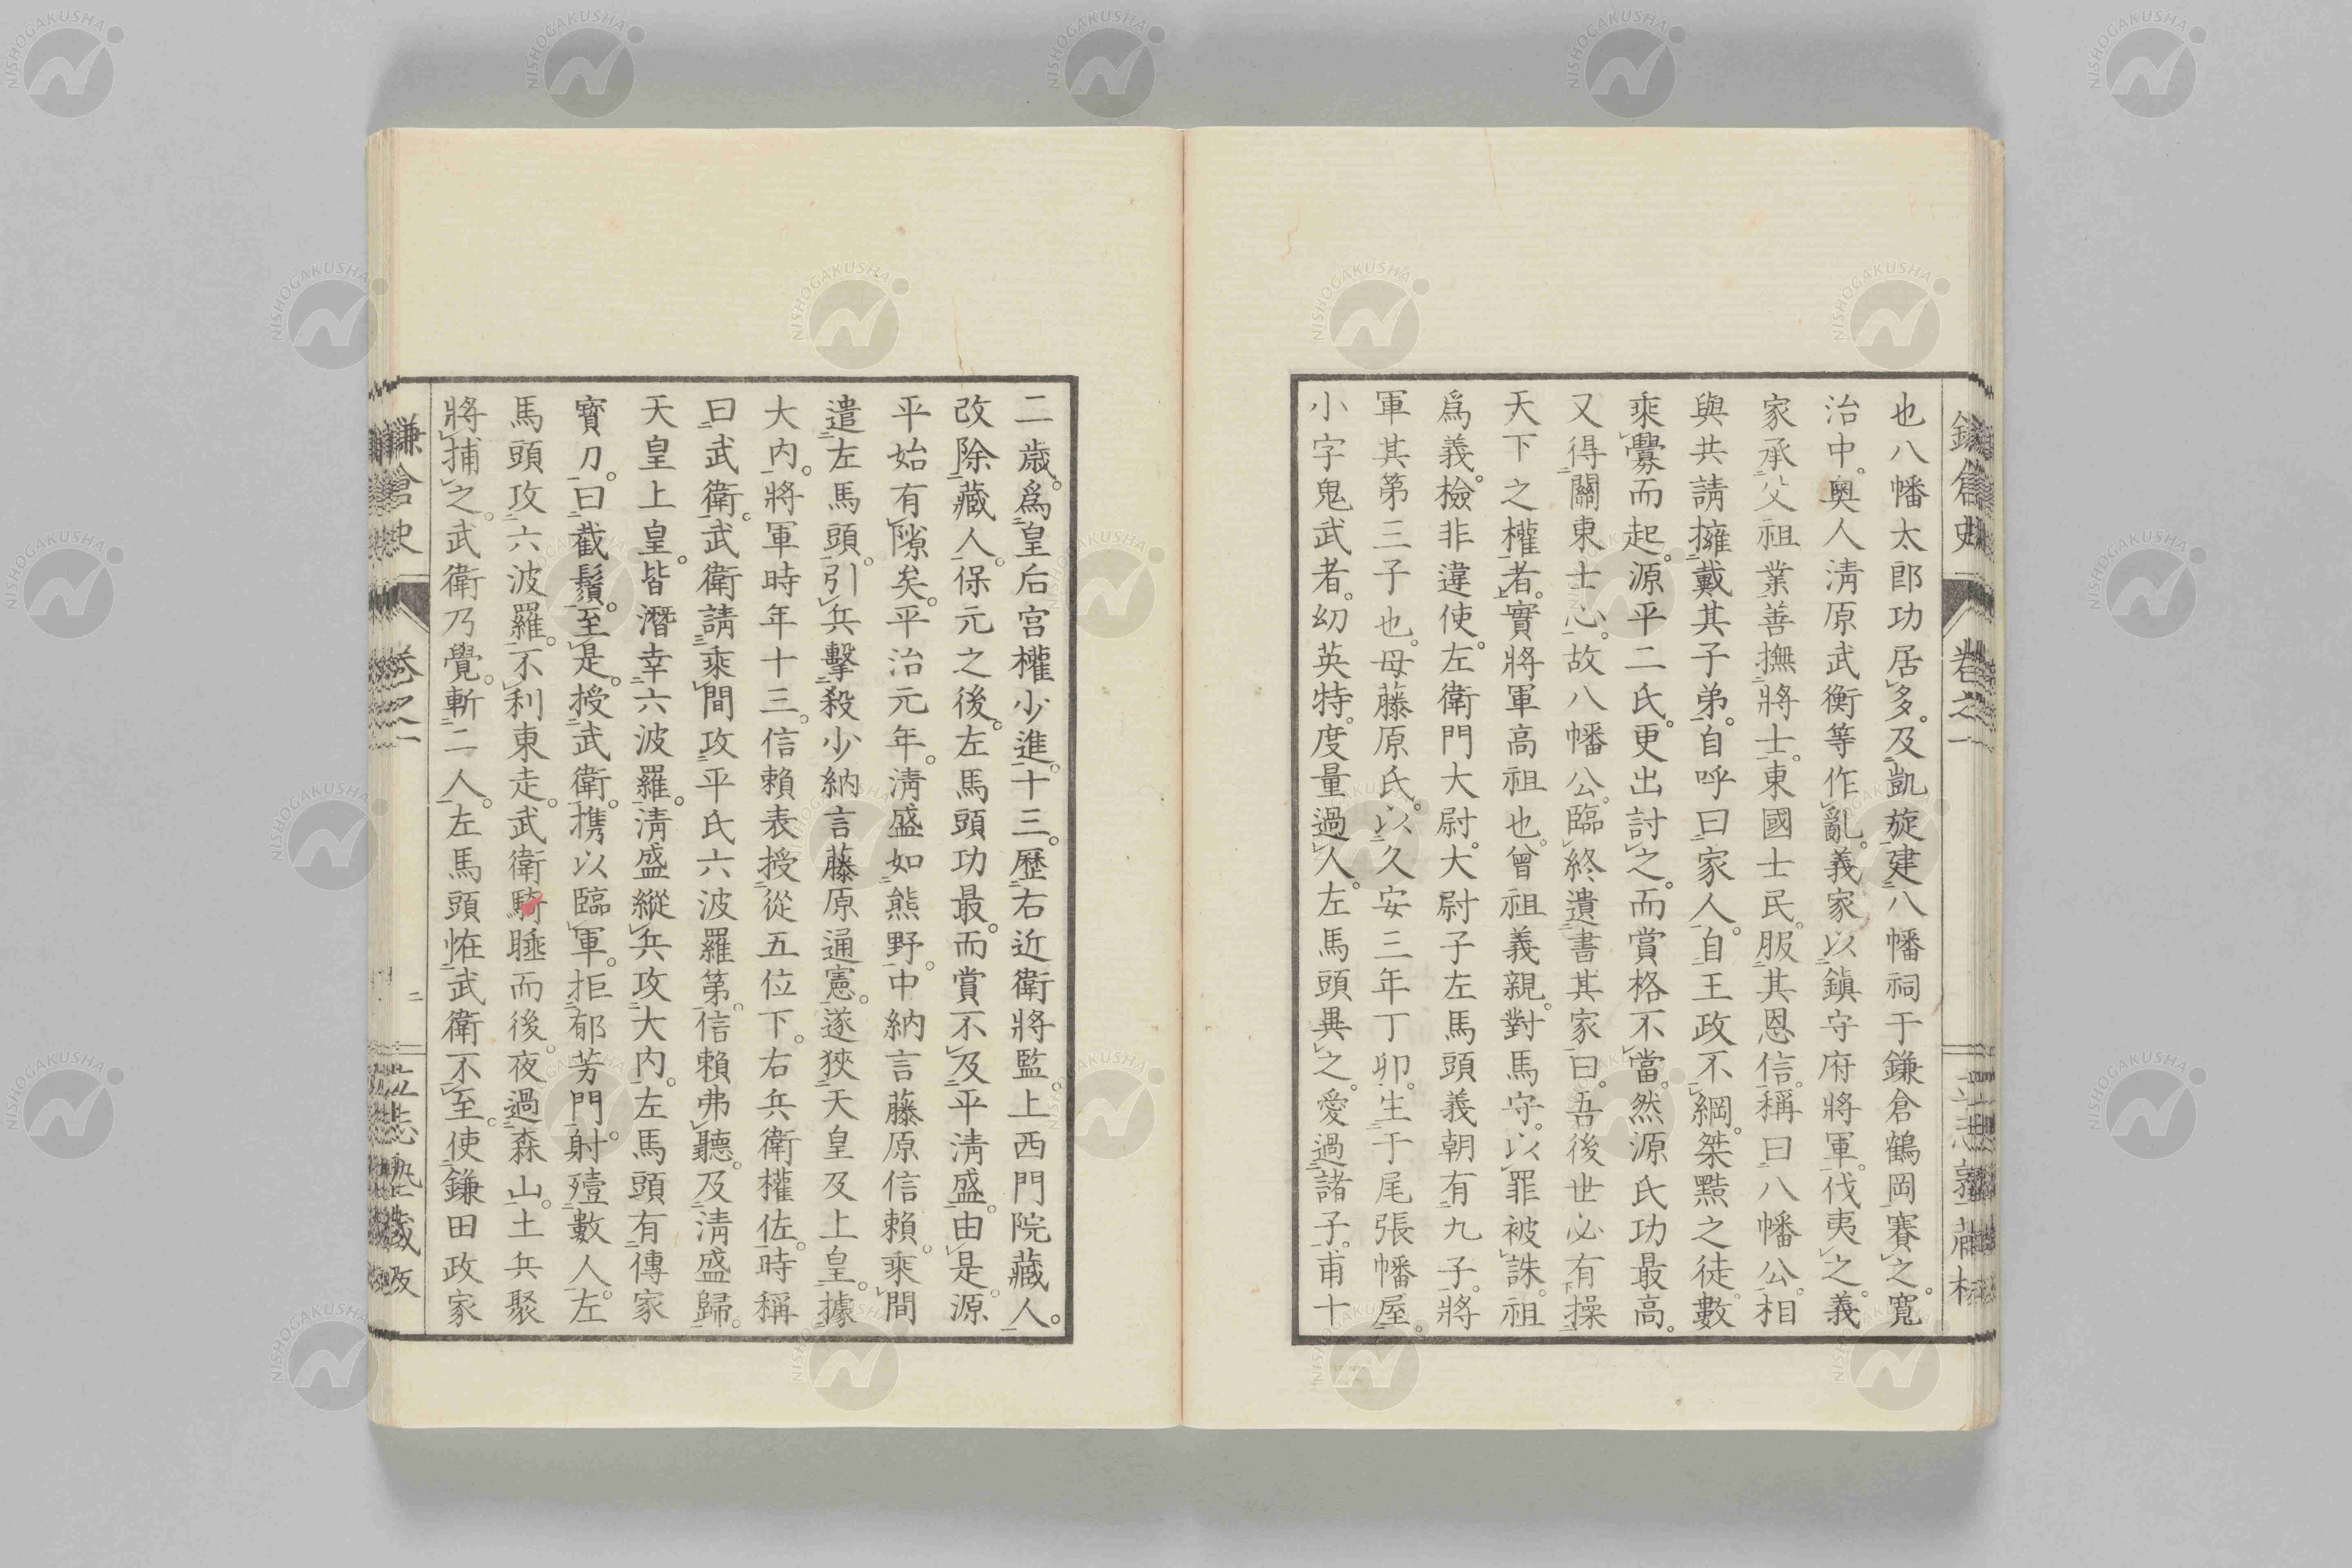 鎌倉史 卷之一
也八幡太郎功居多。及凱旋建八幡祠于鎌倉鶴岡賽之。寬
治中。奧人淸原武衡等作亂。義家以鎮守府將軍。伐夷之。義
家承父祖業善撫將士。東國士民。服其恩信。稱曰八幡公。相
與共請擁戴其子弟。自呼曰家人。自王政不綱。桀黠之徒。數
乘釁而起。源平二氏。更出討之。而賞格不當。然源氏功最高。
又得關東士心。故八幡公。臨終遺書其家曰。吾後世必有操
天下之權者。實將軍高祖也。曾祖義親。對馬守。以罪被誅。祖
爲義。檢非違使。左衛門大尉。大尉子左馬頭義朝有九子。將
軍其第三子也。母藤原氏。以久安三年丁卯。生于尾張幡屋。
小字鬼武者。幼英特。度量過人。左馬頭異之。愛過諸子。甫十
二歲。爲皇后宮權少進。十三。歷右近衛將監。上西門院藏人。
改除藏人。保元之後。左馬頭功最。而賞不及平淸盛。由是。源
平始有隙矣。平治元年。淸盛如熊野。中納言藤原信賴。乘間
遣左馬頭。引兵擊殺少納言藤原通憲。遂狹天皇及上皇。據
大內。將軍時年十三。信賴表授從五位下。右兵衛權佐。時稱
曰武衛。武衛請乘間攻平氏六波羅第。信賴弗聽。及淸盛歸。
天皇上皇。皆潛幸六波羅。淸盛縱兵攻大內。左馬頭有傳家
寶刀。曰截鬚。至是。授武衛。携以臨軍。拒郁芳門。射殪數人。左
馬頭攻六波羅。不利東走。武衛騎睡而後。夜過森山。土兵聚
將捕之。武衛乃覺。斬二人。左馬頭恠武衛不至。使鎌田政家
鎌倉史 卷之一 二